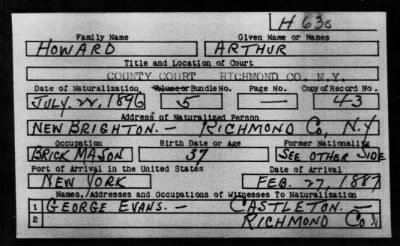 H 630
Family Name Given Name or Names
HOWARD ARTHUR
Title and Location of Court
COUNTY COURT RICHMOND CO, N.Y.
Date of Naturalization Volume or Bundle No. Page No. Copy of Record No.
JULY. 22, 1896 5 — 43
Address of Naturalized Person
NEW BRIGHTON. - RICHMOND Co, N.Y
Occupation Birth Date or Age Former Nationality
BRICK MASON 37 SEE OTHER SIDE
Port of Arrival in the United States Date of Arrival
NEW YORK FEB. 27, 1887
Names, Addresses and Occupations of Witnesses To Naturalization
1 GEORGE EVANS. - CASTLETON. -
2 RICHMOND Co.